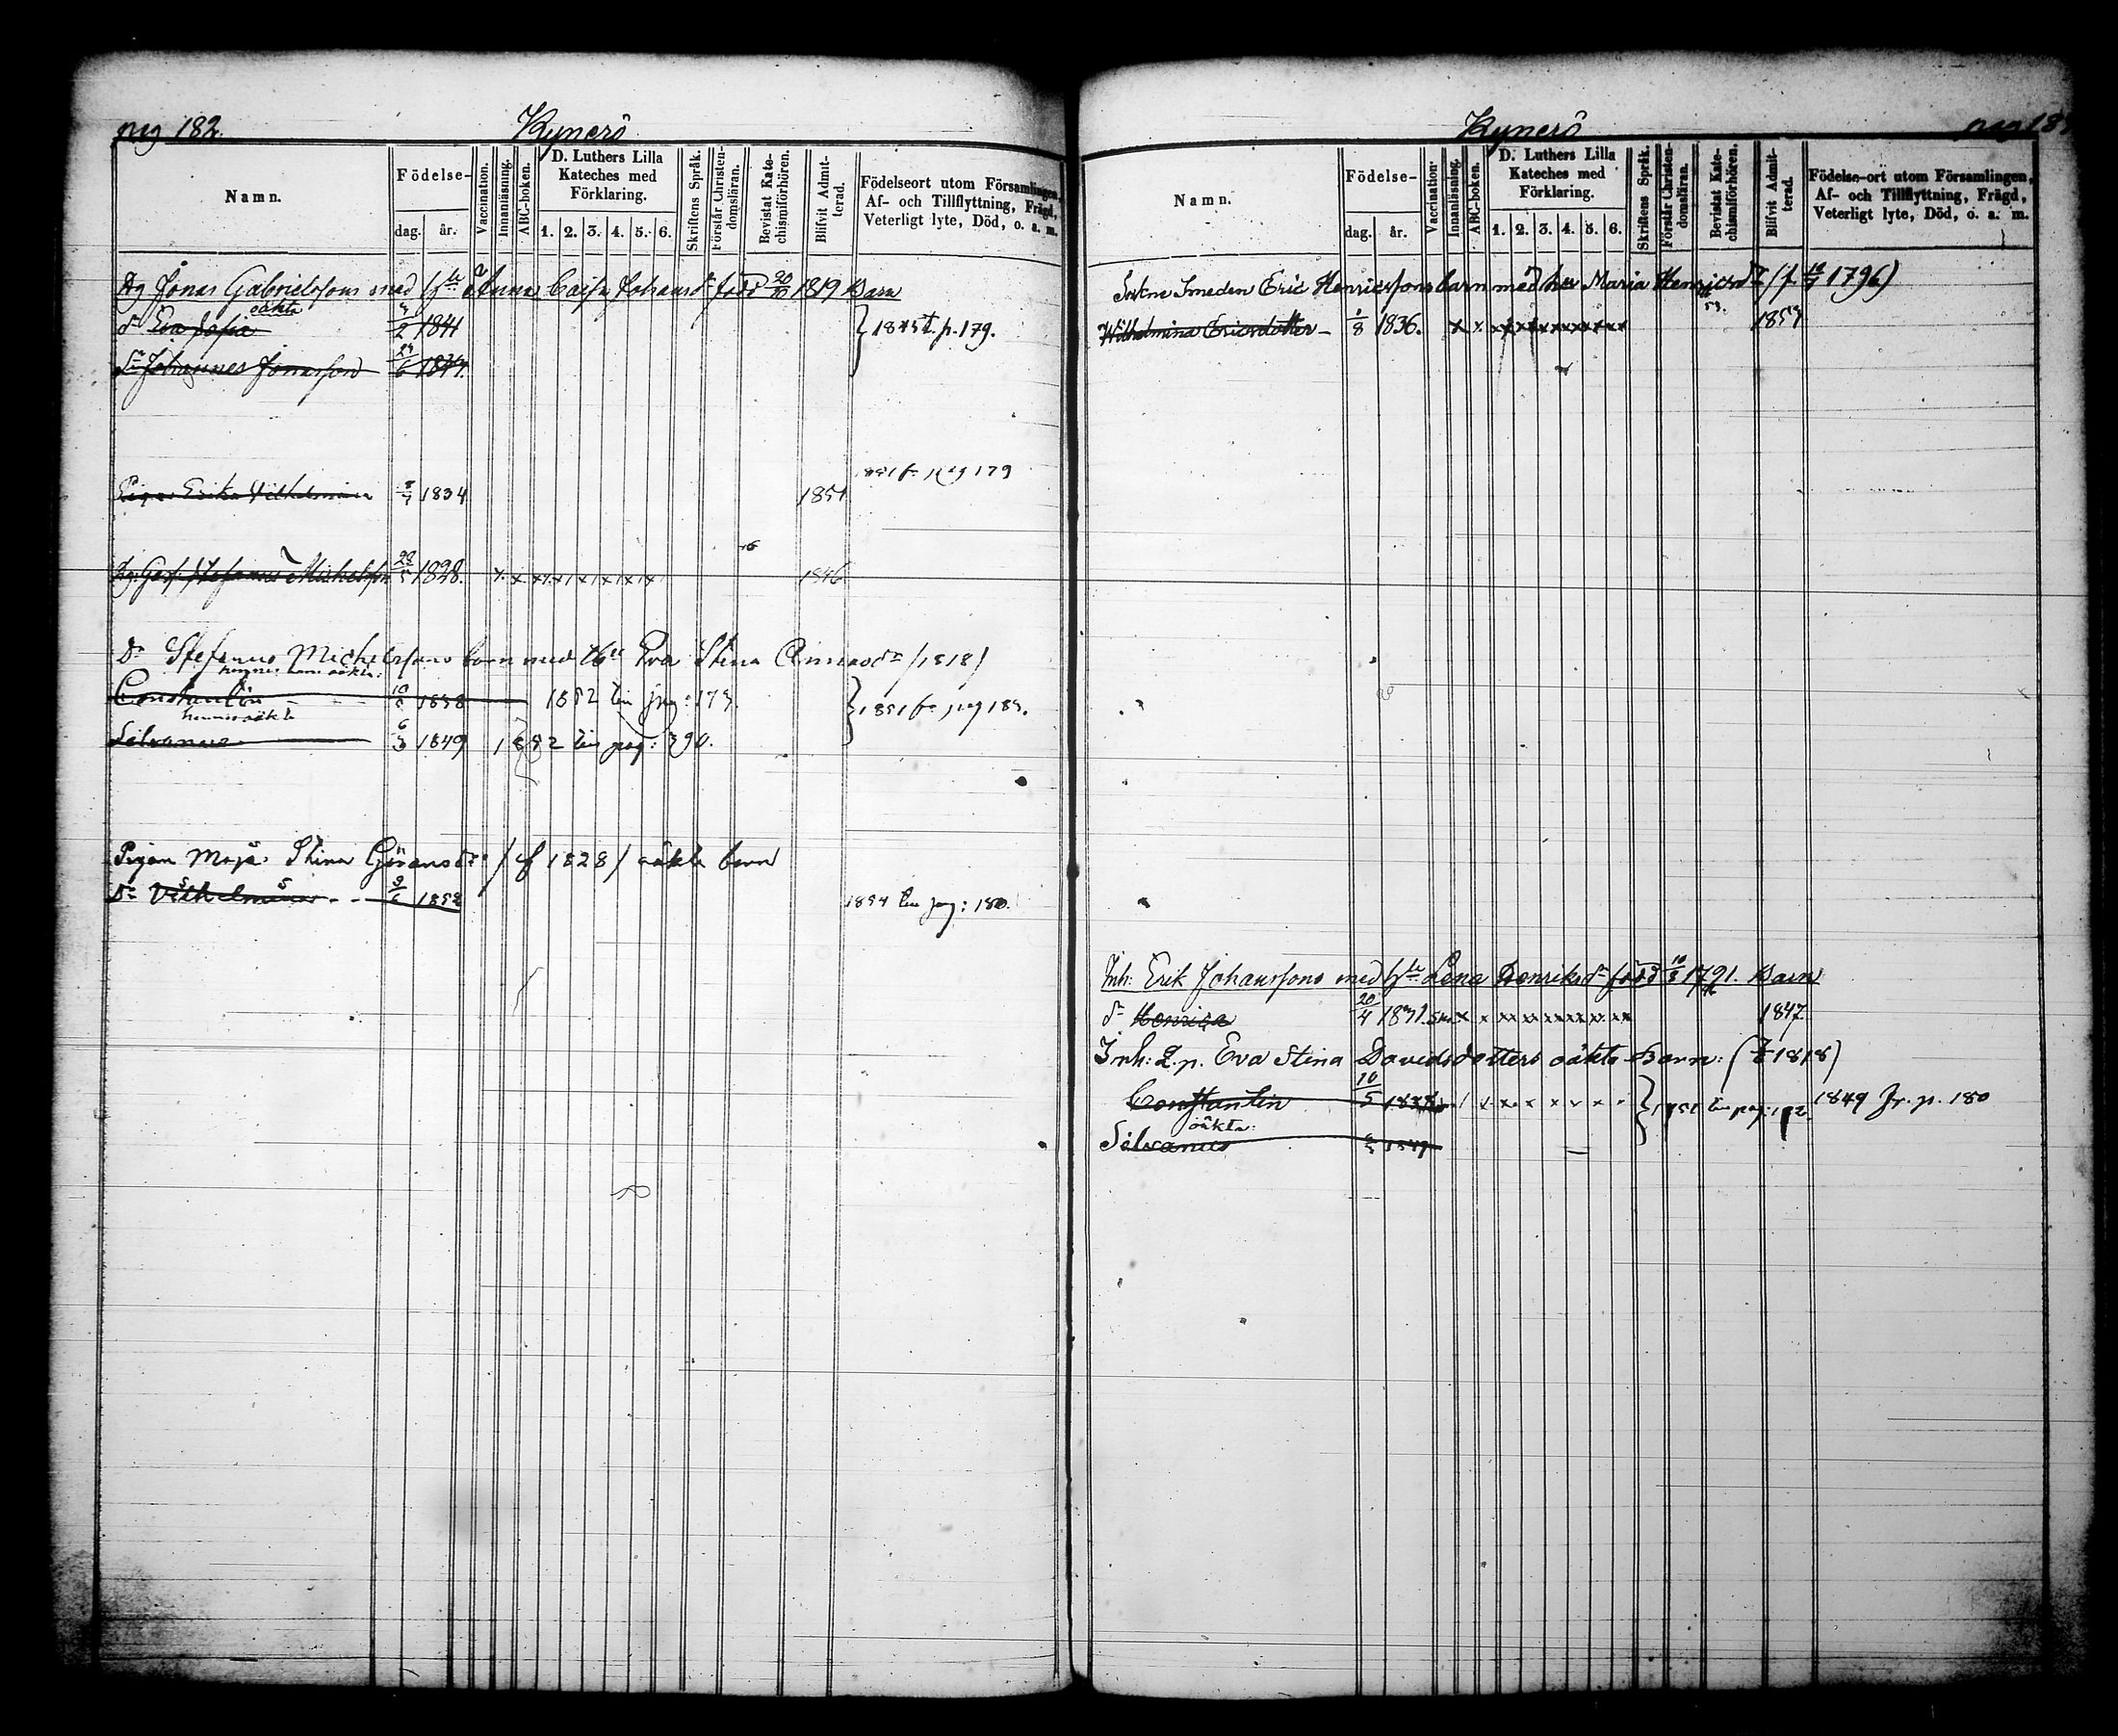 pag 182.
Kynerö
Namn.
Födelse-
dag.
år.
Vaccination.
Innanläsning.
ABC-boken.
D. Luthers Lilla
Kateches med
Förklaring.
1. 2. 3. 4. 5. 6.
Skriftens Språk.
Förstår Christen-
domsläran.
Bevistat Kate-
chismiförhören.
Blifvit Admit-
terad.
Födelseort utom Församlingen,
Af- och Tillflyttning, Frägd,
Veterligt lyte, Död, o. a. m.
Dg Jonas Gabrielssons med hu Anna Caisa Johansdr född 20/10 1819 Barn
oäkta
dr Eva Sofia 1841
Sn Johannes Jonasson 1844.
1845 t. p. 179.
Pigan Erika Vilhelmina 1834 1851
pag 179
Stefanus Michelsson 28/5 1828. x x x x x x x x 1846
Dr Stefanus Michelssons barn med Eva Stina (1818)
hennes barn oäkta:
Constantin 10/5 1838 1852 till pag: 173.
hennes oäkta
Silvanus 6/3 1849 1852 till pag: 390.
1851 fr pag 183.
Pigan Maja Stina Göransdr (f 1828) oäkta barn
Dr Vilhelmina 9/6 1852
1854 till pag: 180.
pag 18
Kynerö
Namn.
Födelse-
dag.
år.
Vaccination.
Innanläsning.
ABC-boken.
D. Luthers Lilla
Kateches med
Förklaring.
1. 2. 3. 4. 5. 6.
Skriftens Språk.
Förstår Christen-
domsläran.
Bevistat Kate-
chismiförhören.
Blifvit Admit-
terad.
Födelse-ort utom Församlingen,
Af- och Tillflyttning, Frägd,
Veterligt lyte, Död, o. a. m.
Smeden Eric Henricssons barn med hu Maria Henricsdr (f. 1796)
53.
Wilhelmina Ericsdotter 1/8 1836. x x x x x x x x 1853
Inh: Erik Johanssons med hu Lena Henriksdr född 10/3 1791. Barn
dr Henrica 20/4 1831. x x xx xx xx xx xx xx 1847
Inh: Q.p. Eva Stina Davidsdotters oäkta Barn: (1818)
Constantin 10/5 1838 1849 Fr. p. 180
oäkta:
Silvanus 1849